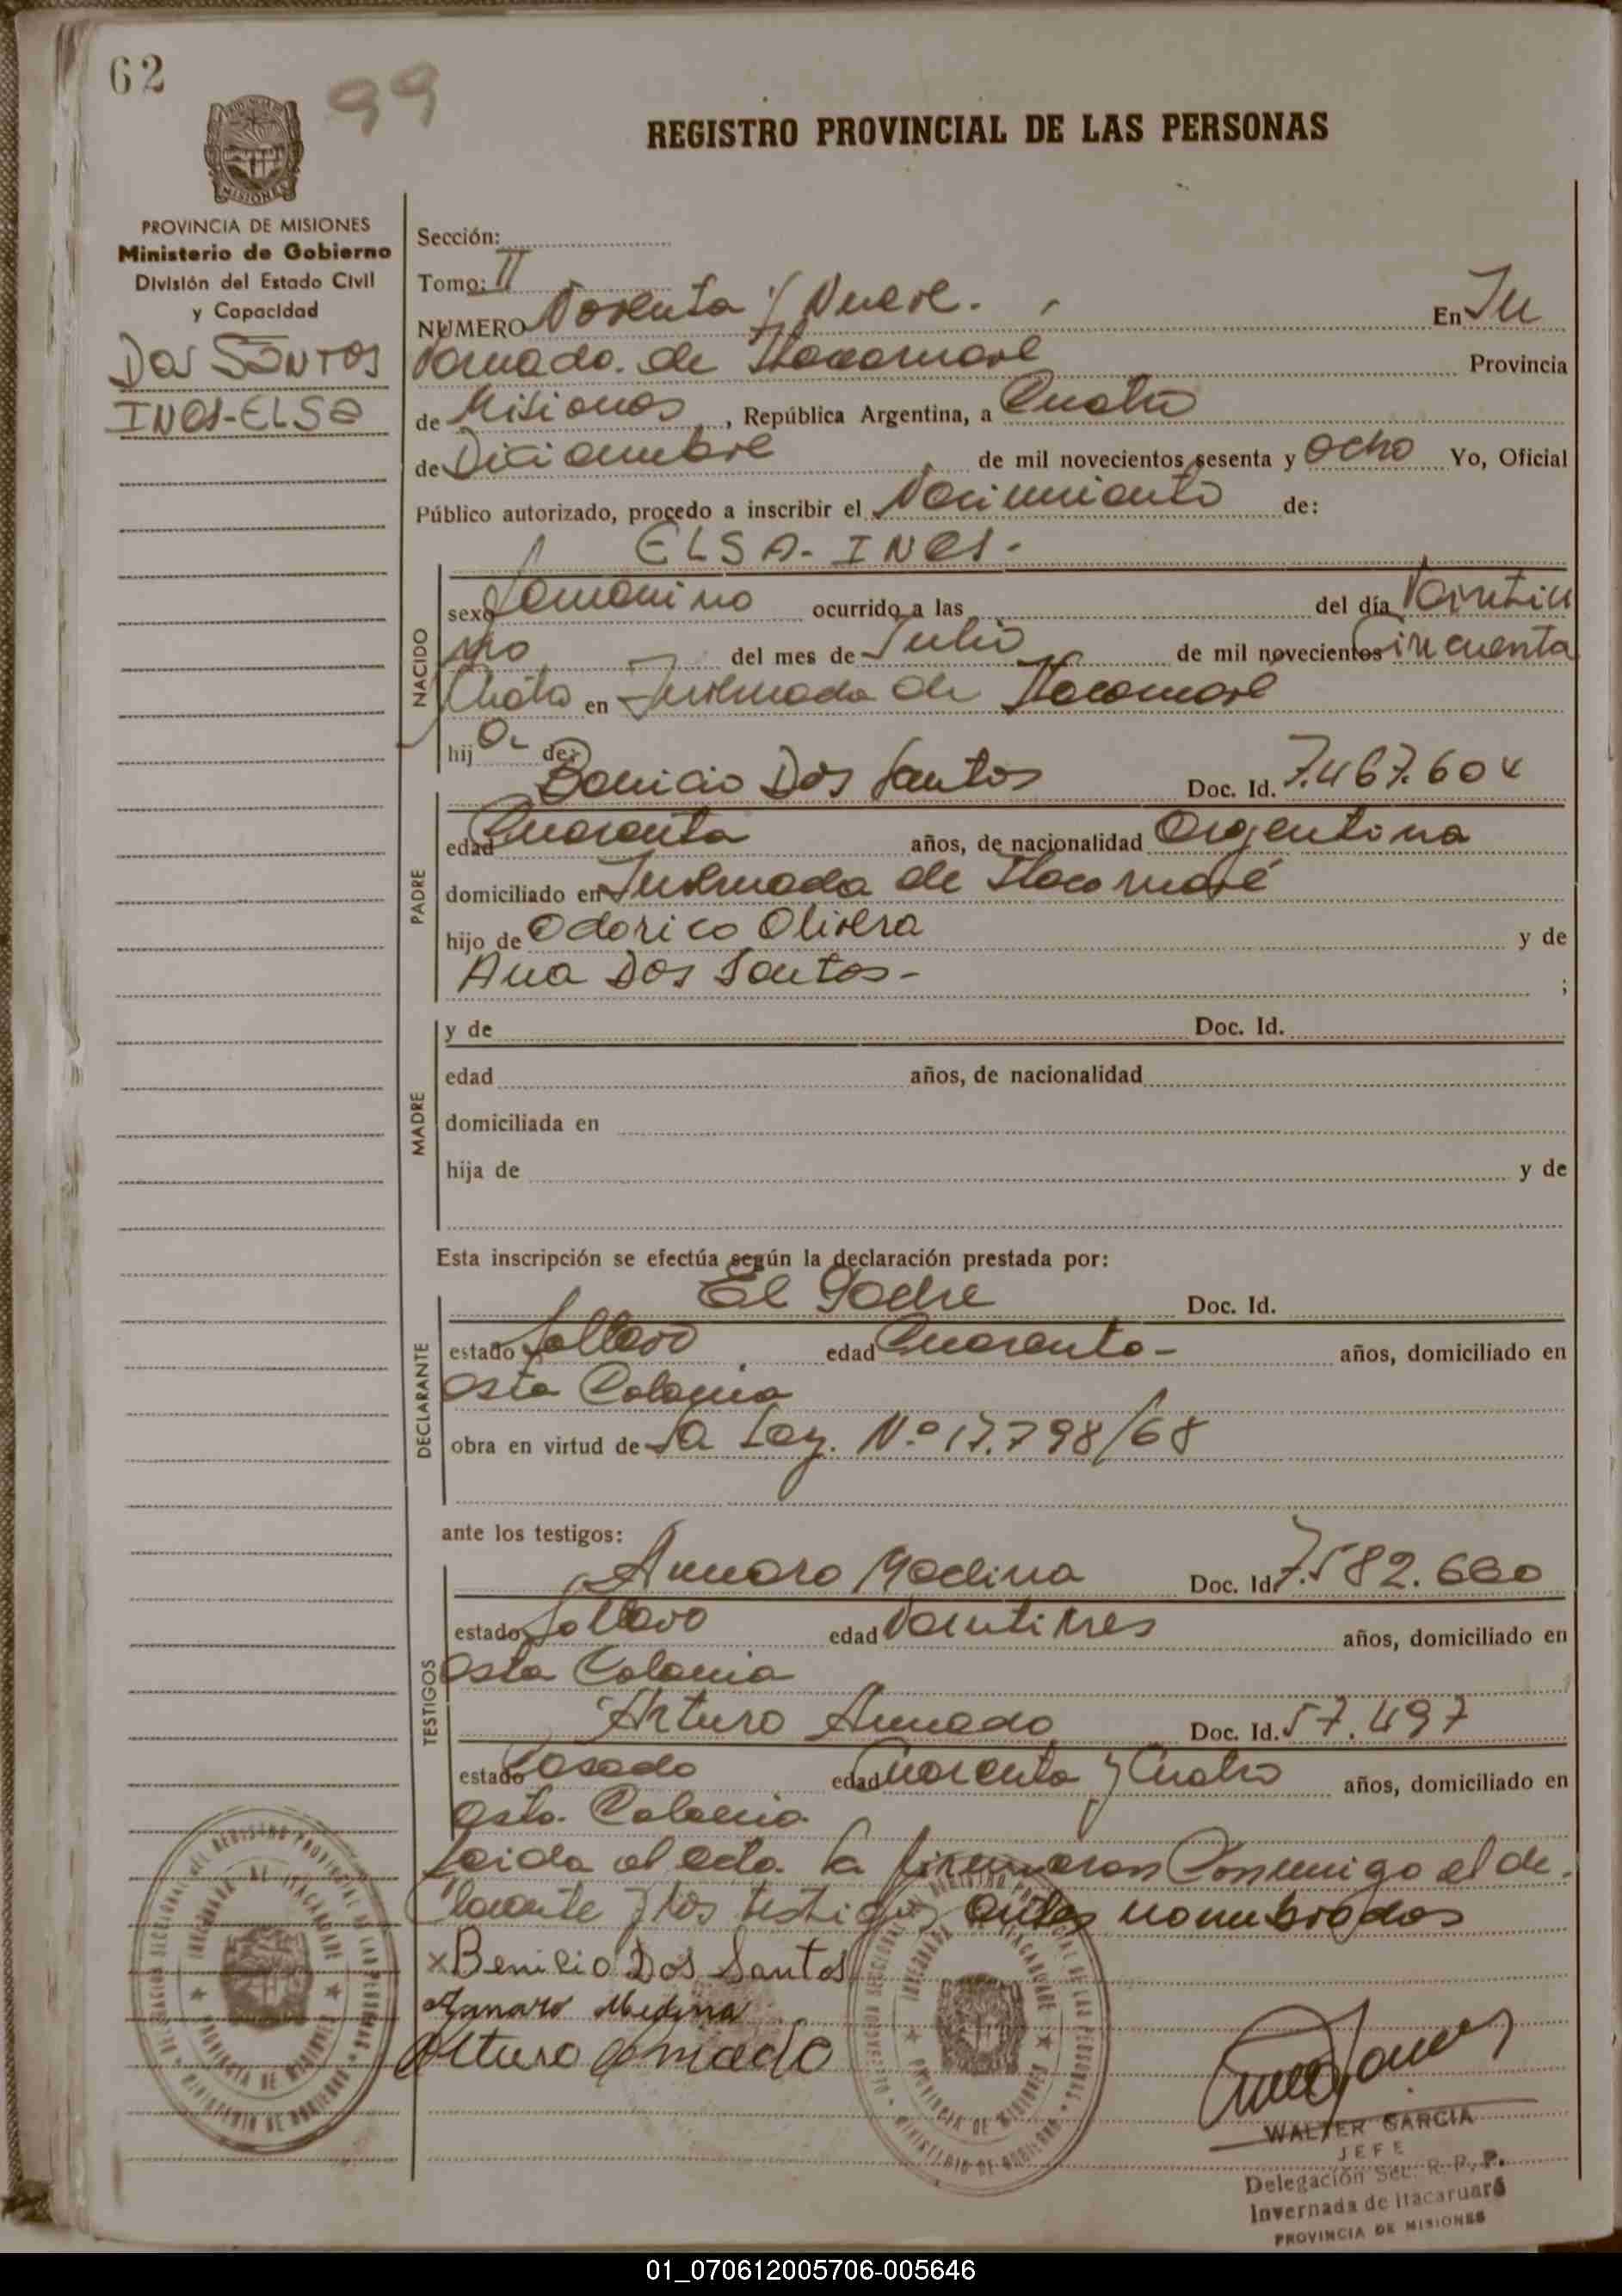 62
99
REGISTRO PROVINCIAL DE LAS PERSONAS
MISIONES
PROVINCIA DE MISIONES
Ministerio de Gobierno
División del Estado Civil
y Capacidad
Dos Santos
INES-ELSA
Sección:
Tomo: II
NUMERO Noventa y Nueve. En In
vernada de Itacaruaré Provincia
de Misiones, República Argentina, a Cuatro
de Diciembre de mil novecientos sesenta y ocho Yo, Oficial
Público autorizado, procedo a inscribir el Nacimiento de:
ELSA-INES.
NACIDO
sexo Femenino ocurrido a las del día Veintiu
no del mes de Julio de mil novecientos cincuenta
y Cuatro en Invernada de Itacaruaré
hija de:
PADRE
Benicio Dos Santos Doc. Id. 7.467.604
edad Cuarenta años, de nacionalidad Argentina
domiciliado en Invernada de Itacaruaré
hijo de Odorico Olivera y de
Ana Dos Santos- ;
MADRE
y de Doc. Id.
edad años, de nacionalidad
domiciliada en
hija de y de
Esta inscripción se efectúa según la declaración prestada por:
DECLARANTE
El Padre Doc. Id.
estado Soltero edad Cuarenta- años, domiciliado en
esta Colonia
obra en virtud de la Ley. Nº 17.798/68
ante los testigos:
TESTIGOS
Amaro Medina Doc. Id. 7.582.660
estado Soltero edad Veintitres años, domiciliado en
esta Colonia
Arturo Amado Doc. Id. 57.497
estado Casado edad Cuarenta y Cuatro años, domiciliado en
esta Colonia
Leida el acta la firmaron Conmigo el de
clarante y los testigos antes nombrados
x Benicio Dos Santos
Amaro Medina
Arturo Amado
WALTER GARCIA
JEFE
Delegación Sec. R. P. P.
Invernada de Itacaruaré
PROVINCIA DE MISIONES
01_070612005706-005646